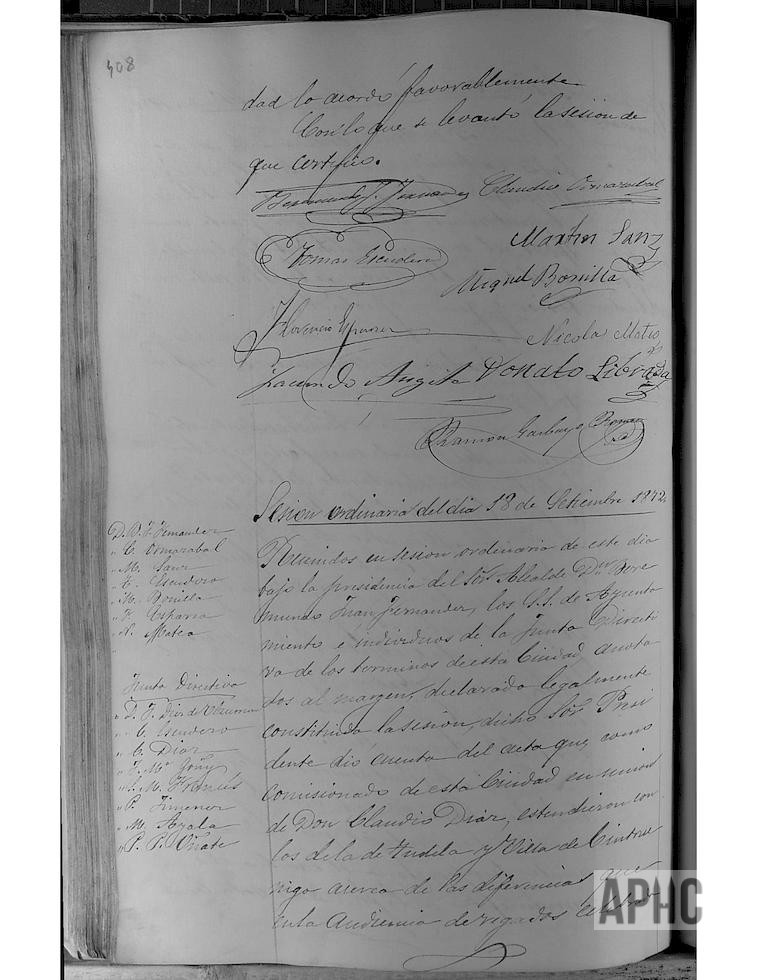 408
dad lo acordó favorablemente
Con lo que se levantó la sesion de
que certifico.
Claudio Ormazabal
Tomas Escudero
Martin Sanz
Miguel Bonilla
Florencio Esparza
Nicolas Mateo
Facundo Angita Donato Librada
Ramon Garbayo Roman
Sesion ordinaria del dia 18 de Setiembre 1872.
D. B. J. Fernandez
" C. Ormazabal
" M. Sanz
" T. Escudero
" M. Bonilla
" F. Esparza
" N. Mateo
Junta Directiva
" C. Escudero
" C. Diaz
" J. Mª Goñy
" M. Francés
" P. Jimenez
" M. Ayala
" P. P. Oñate
Reunidos en sesion ordinaria de este dia
bajo la presidencia del Sor. Alcalde Dn. Bere
mundo Juan Fernandez, los S.S. de Ayunta
miento e individuos de la Junta Directi
va de los terminos de esta Ciudad anota
dos al margen, declarada legalmente
constituida la sesion, dicho Sor. Presi
dente dió cuenta del acta que, como
comisionado de esta Ciudad en union
de Don Claudio Diaz, estendieron con
los de la de Tudela y Villa de Cintrue
nigo acerca de las diferencias que
en la Audiencia de regados celebra
APHC